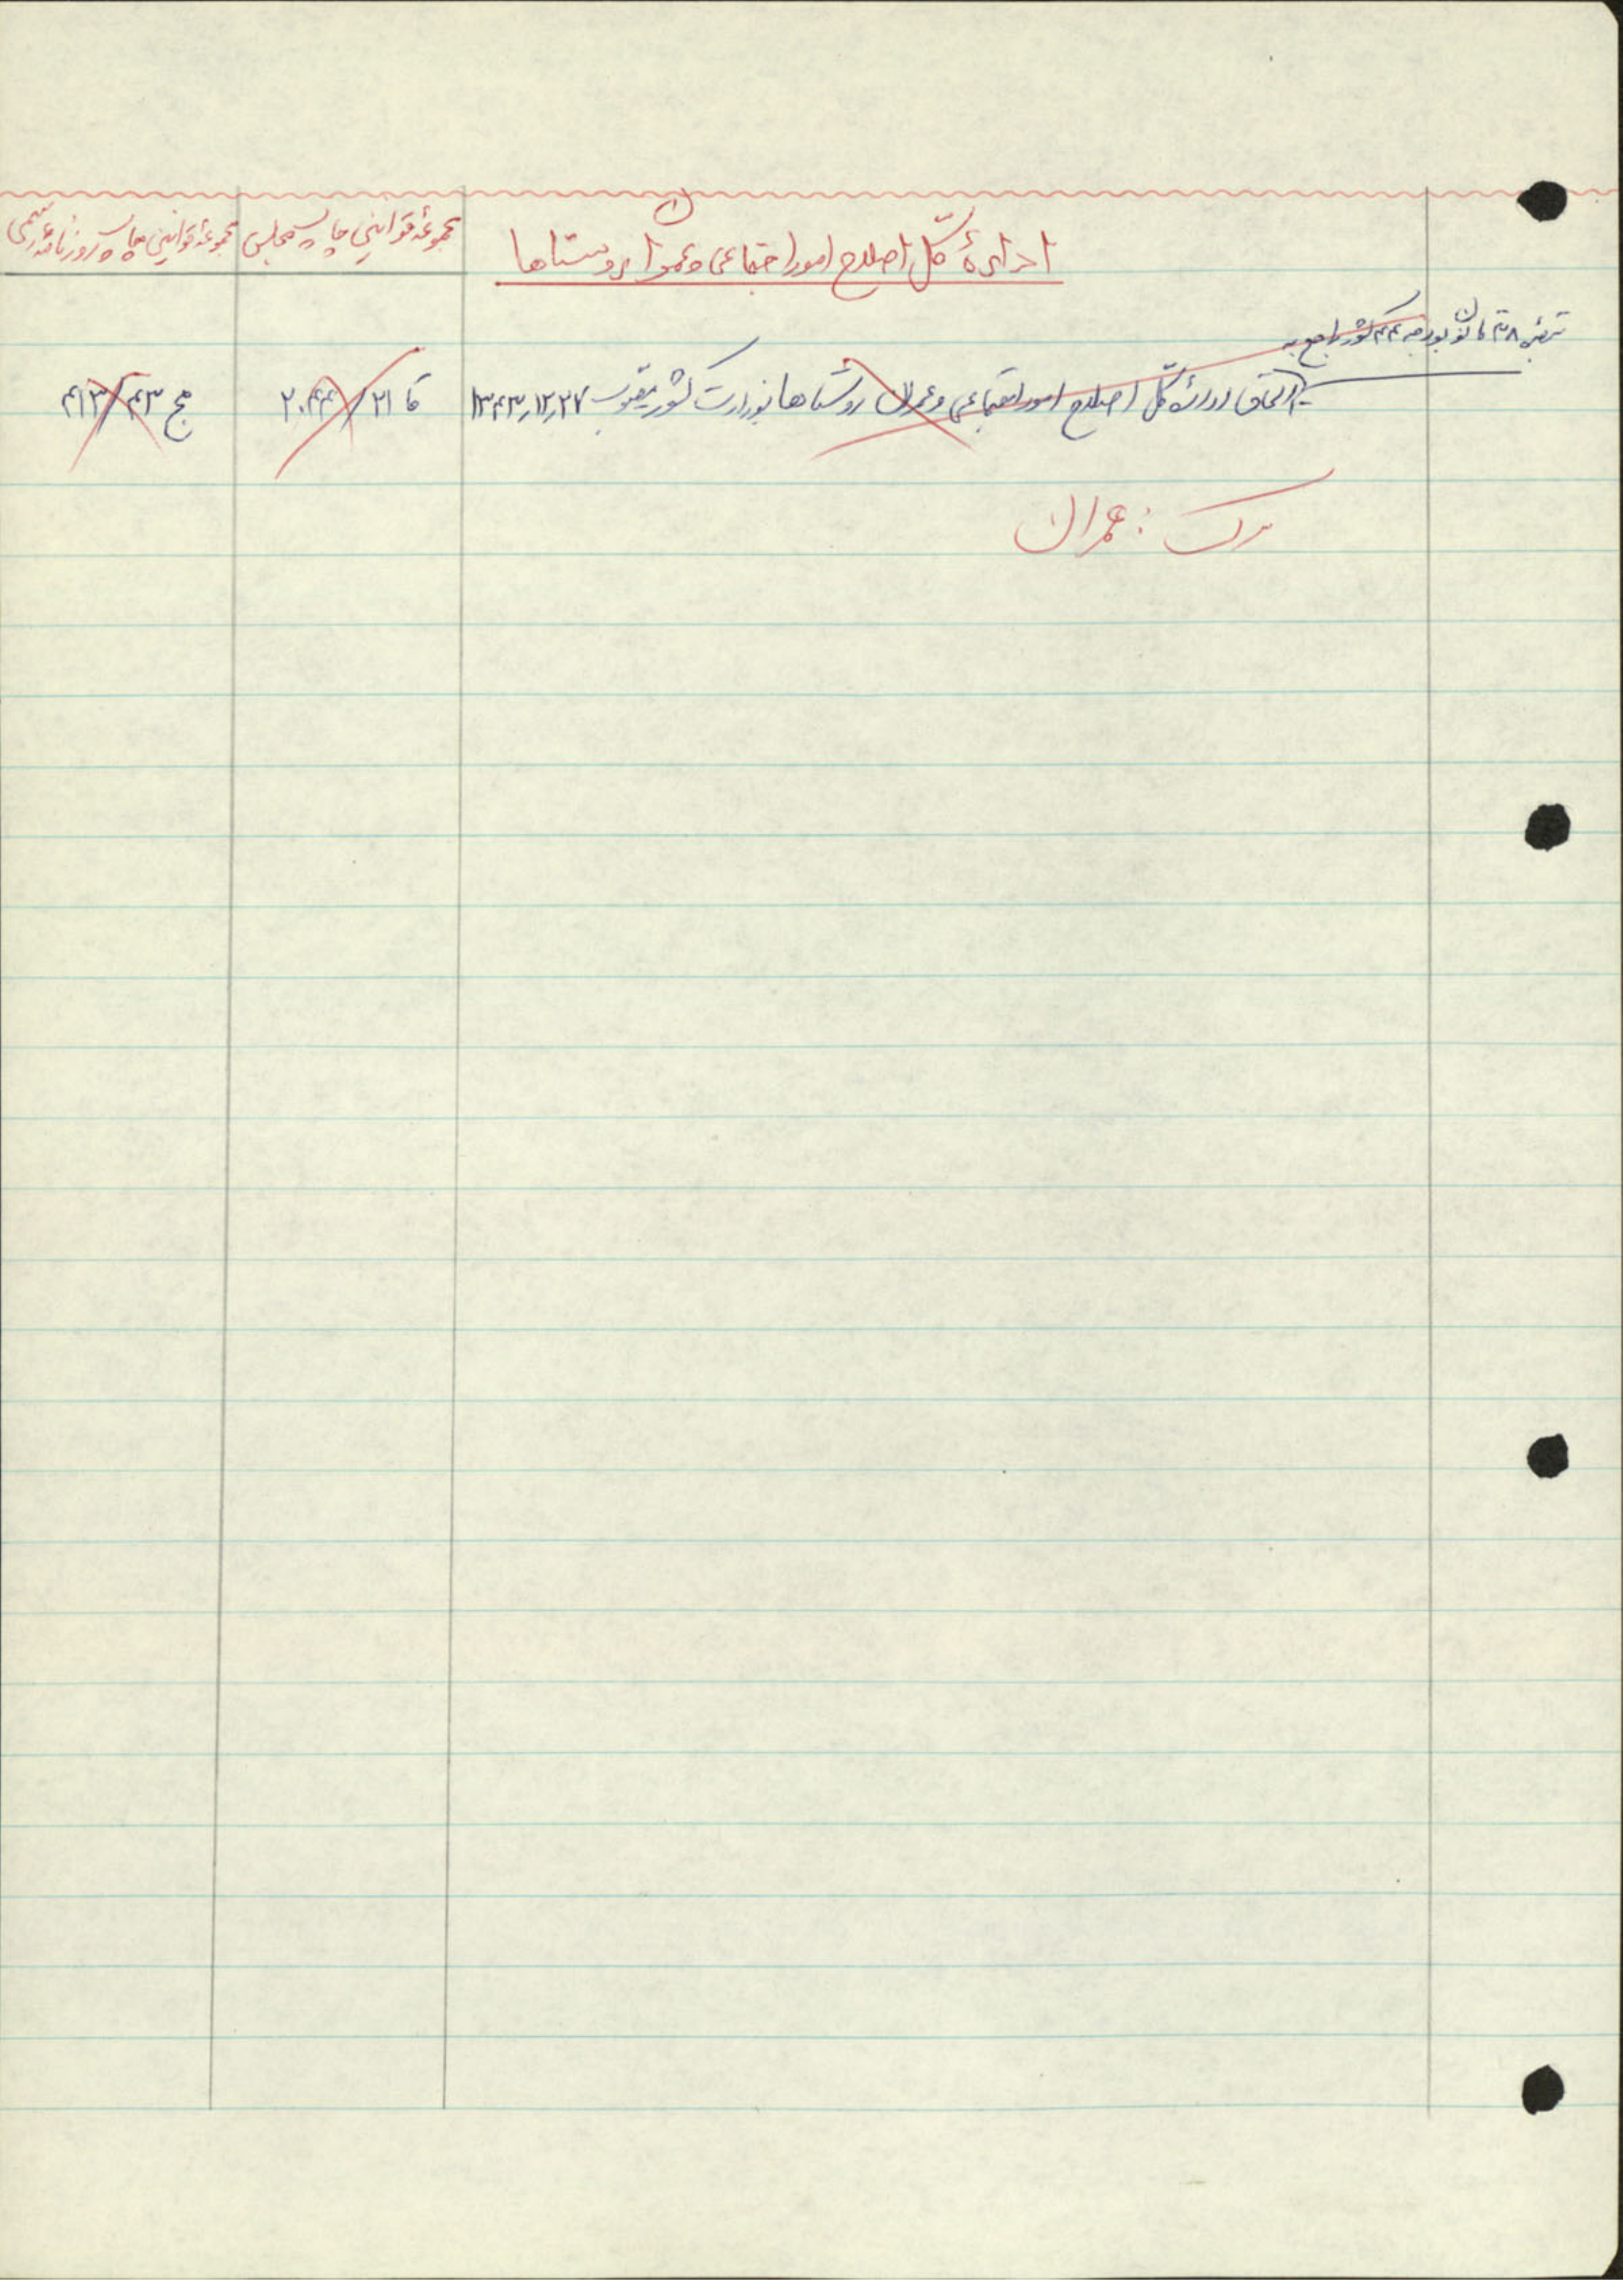 ادارهٔ کل اصلاح امور اجتماعی و عمران روستاها
مجموعهٔ قوانین چاپ مجلس
مجموعهٔ قوانین چاپ روزنامهٔ رسمی
تبصرهٔ ۸ قانون بودجه ۴۴ کشور راجع به
الحاق ادارهٔ کل اصلاح امور اجتماعی و عمران روستاها بوزارت کشور مصوب ۱۳۴۳٫۱۲٫۲۷
قا ۲۱ / ۲۰۴۴
مج ۴۳ / ۴۱۳
رک : عمران